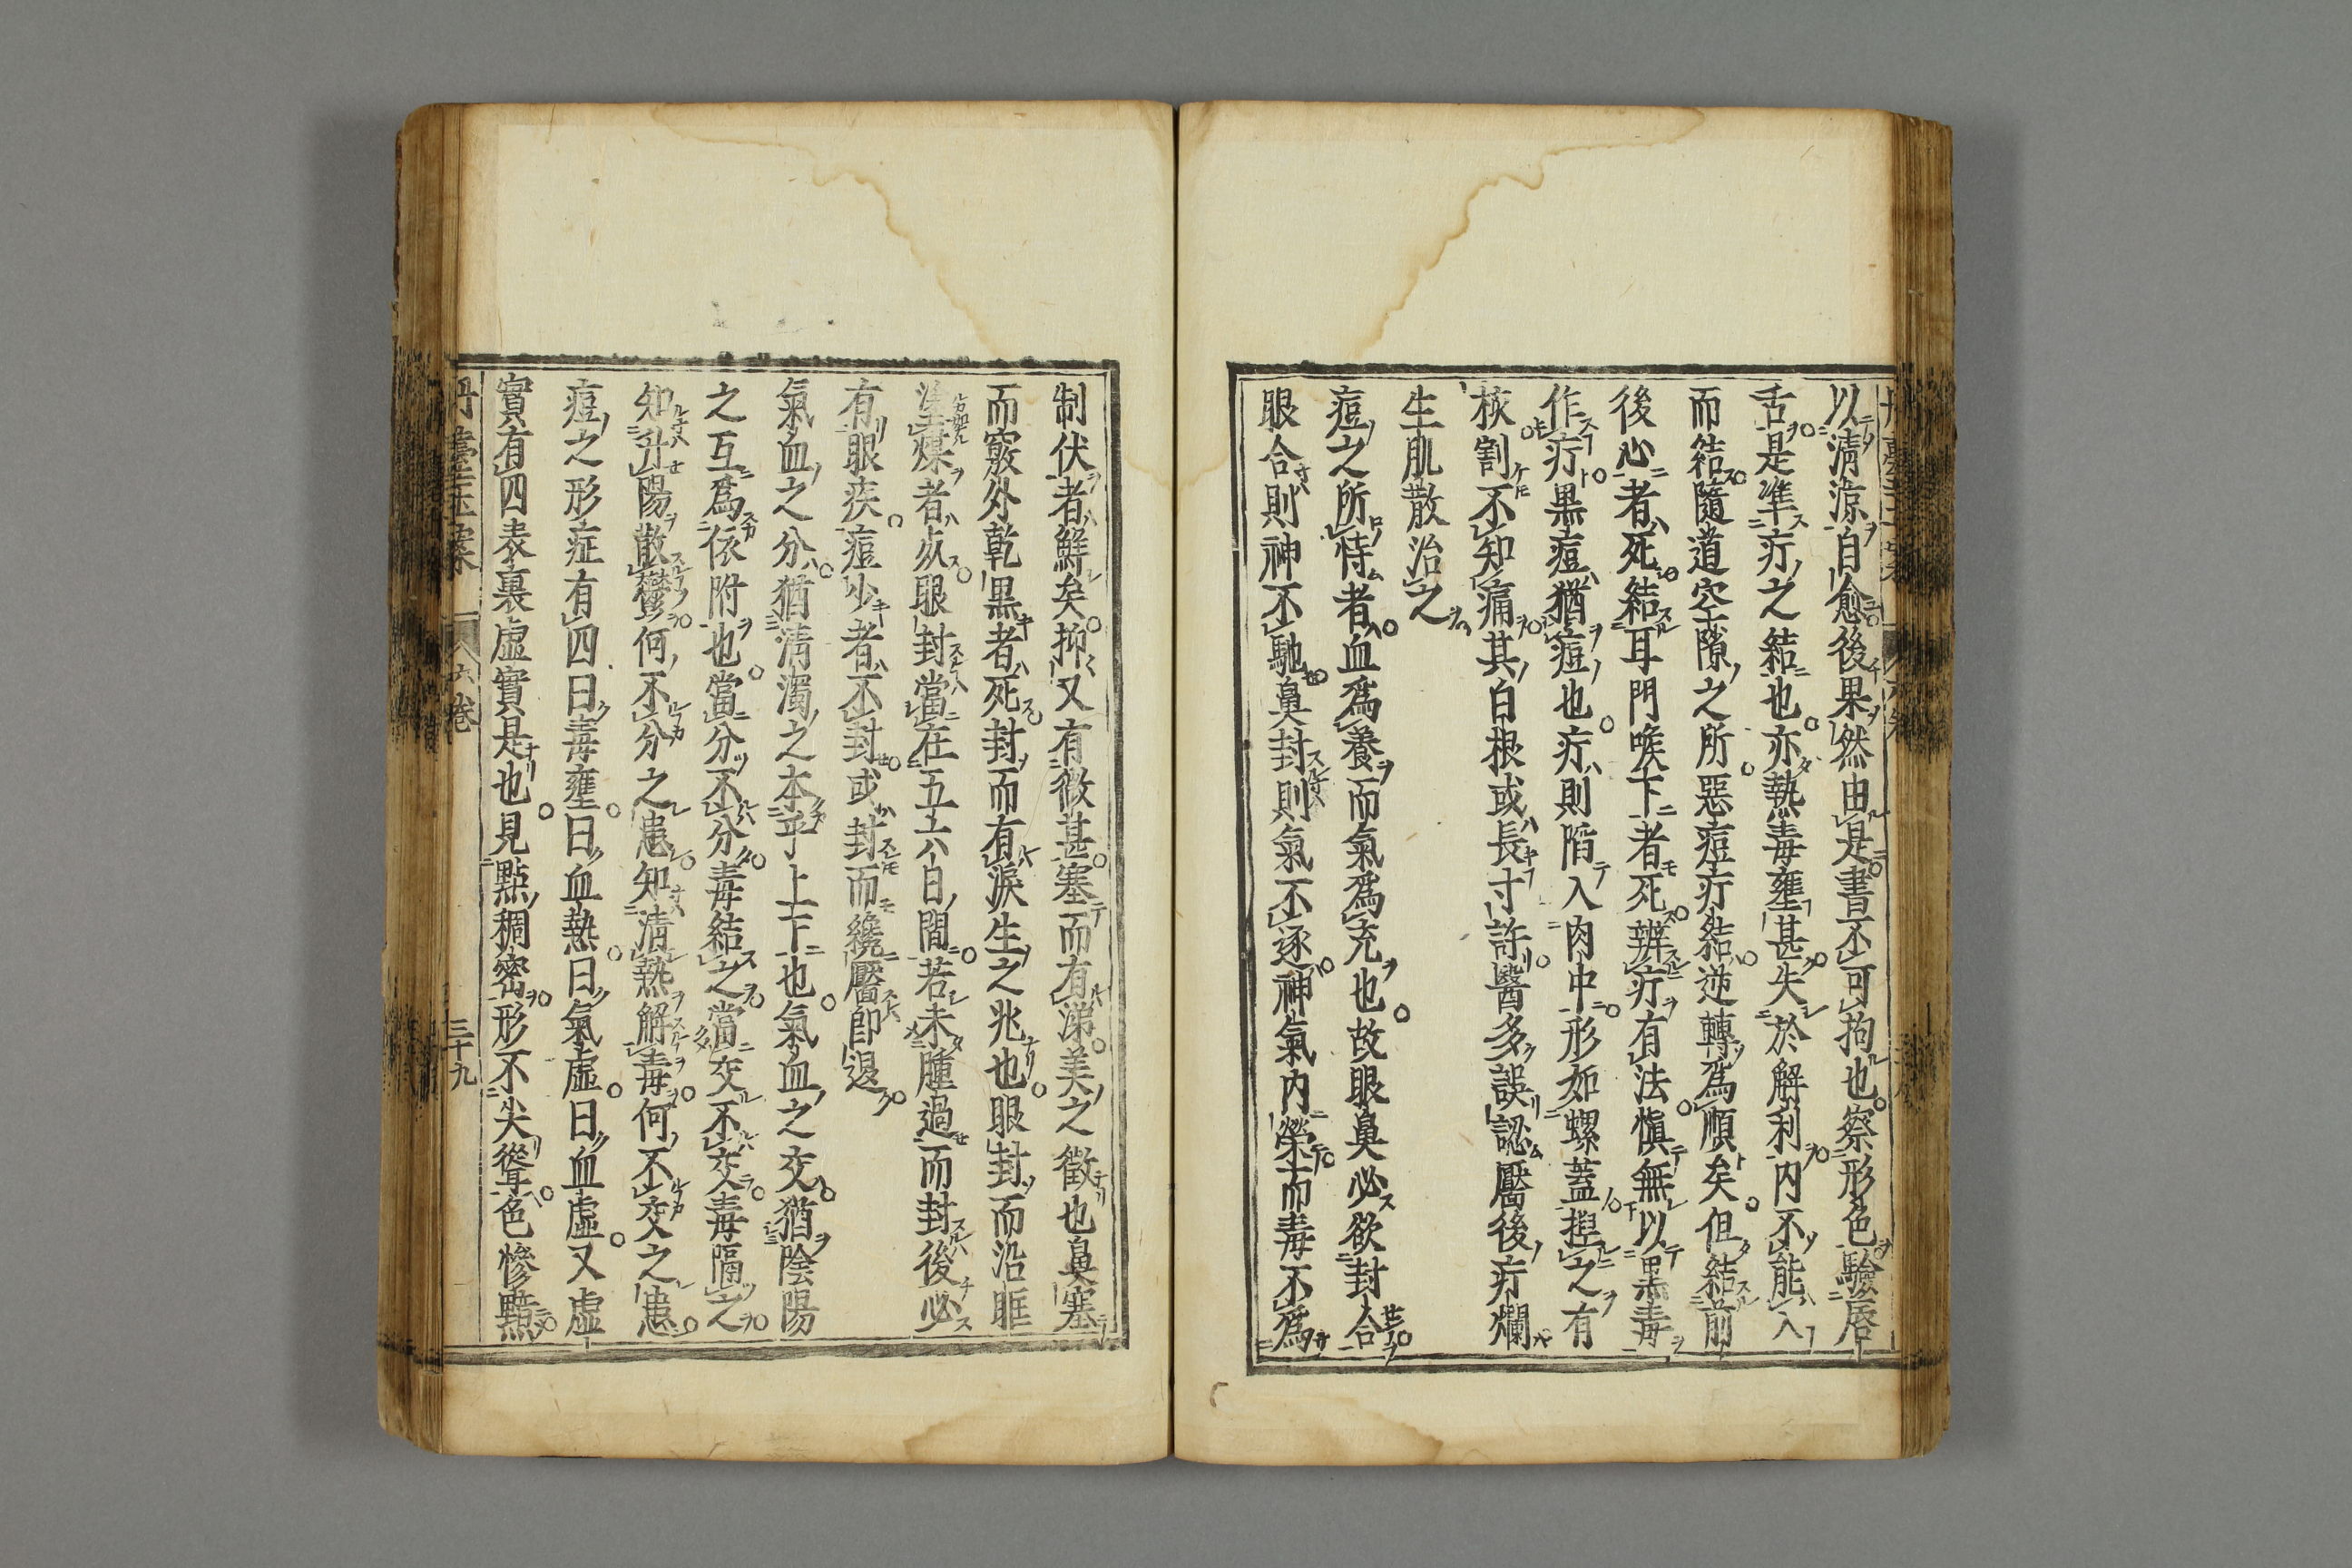 以清涼自愈後果然由是書不可拘也察形色驗唇
舌是準疔之結也亦熱毒壅甚失於解利内不能入
而結隨道空隙之所惡痘疔結逆轉為順矣但結前
後心者死結耳門喉下者死辨疔有法慎無以黒毒
作疔黒痘猶痘也疔則陷入肉中形如螺蓋揑之有
核割不知痛其白根或長寸許醫多誤認靨後疔爛
生肌散治之
痘之所恃者血為養而氣為充也故眼鼻必欲封合
眼合則神不馳鼻封則氣不逐神氣内榮而毒不為
制伏者鮮矣抑又有微甚塞而有涕美之徵也鼻塞
而竅外乾黒者死封而有淚生之兆也眼封而沿眶
煤者必眼封當在五六日間若未腫過而封後必
有眼疾痘少者不封或封而纔靨即退
氣血之分猶清濁之本乎上下也氣血之交猶陰陽
之互為依附也當分不分毒結之當交不交毒隔之
知升陽散鬱何不分之患知清熱解毒何不交之患
痘之形症有四曰毒壅曰血熱曰氣虛曰血虛又虛
實有四表裏虛實是也見點稠密形不尖聳色慘黯
丹臺玉案 六卷 三十九